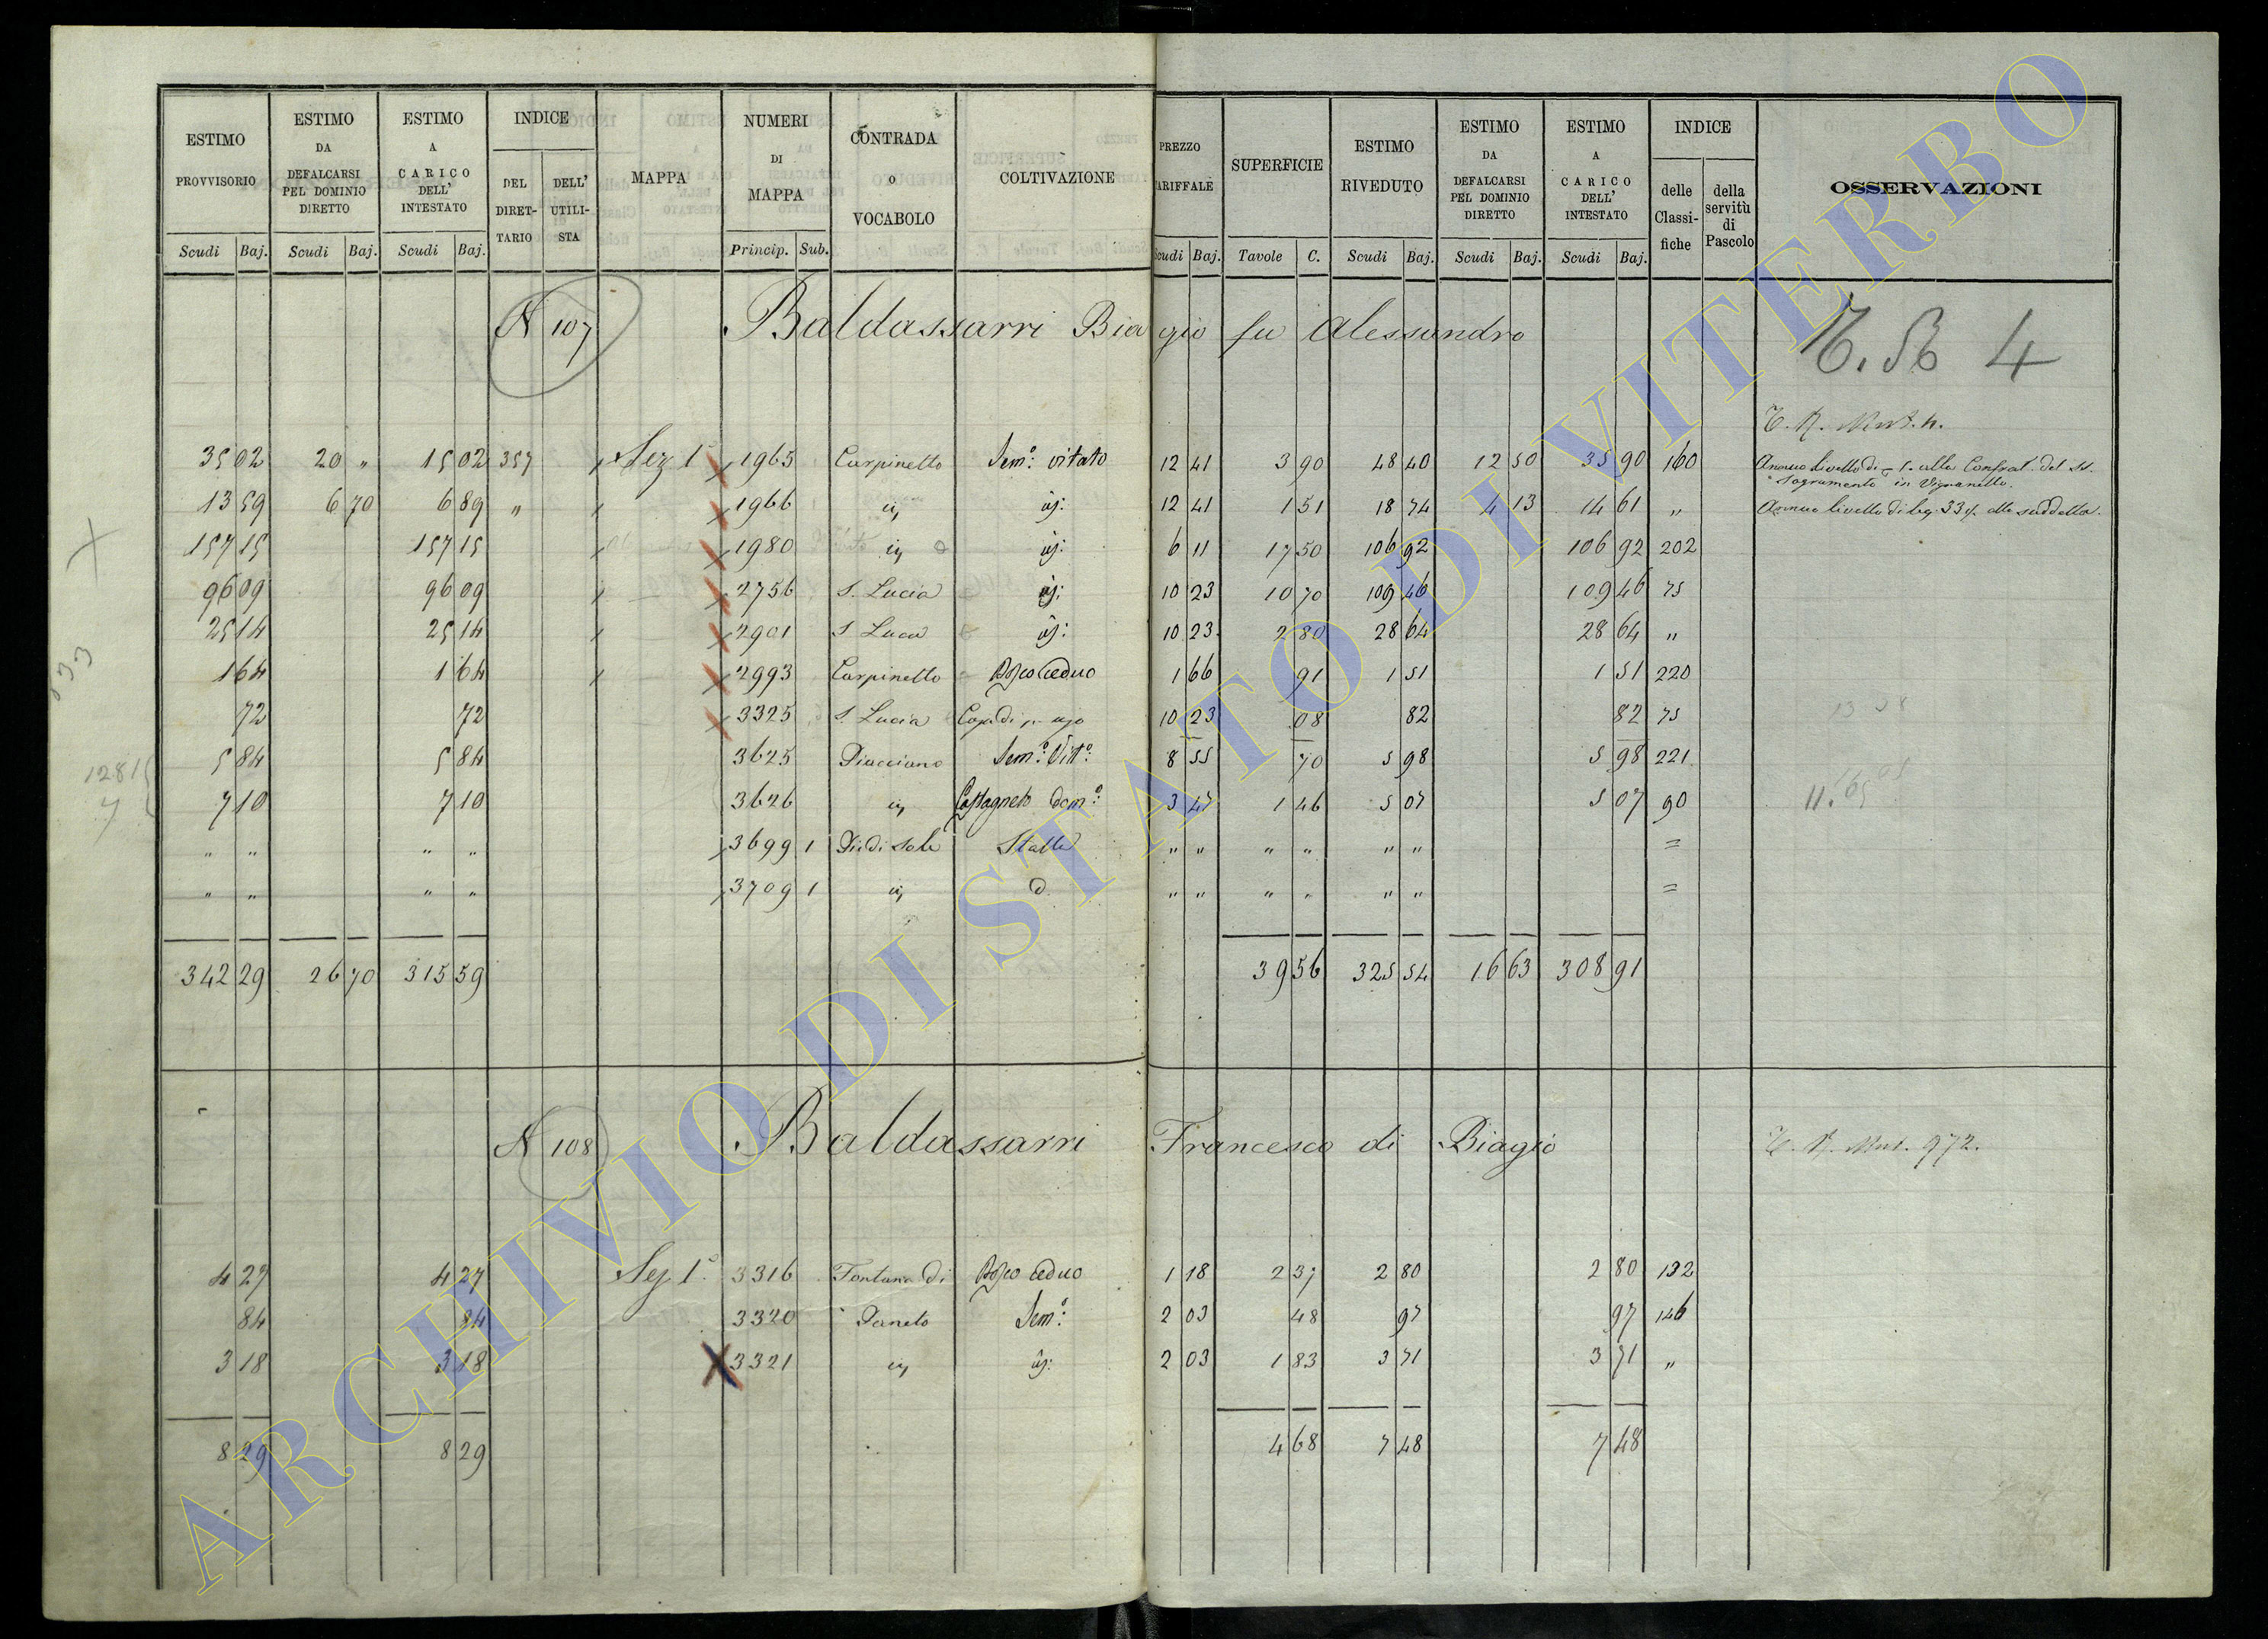 ESTIMO PROVVISORIO | ESTIMO DA DEFALCARSI PEL DOMINIO DIRETTO | ESTIMO A CARICO DELL' INTESTATO | INDICE | MAPPA | NUMERI DI MAPPA | CONTRADA O VOCABOLO | COLTIVAZIONE | PREZZO ARIFFALE | SUPERFICIE | ESTIMO RIVEDUTO | ESTIMO DA DEFALCARSI PEL DOMINIO DIRETTO | ESTIMO A CARICO DELL' INTESTATO | INDICE | OSSERVAZIONI
DEL DIRET-TARIO | DELL' UTILI-STA | delle Classi-fiche | della servitù di Pascolo
Scudi | Baj. | Scudi | Baj. | Scudi | Baj. | Princip. | Sub. | cudi | Baj. | Tavole | C. | Scudi | Baj. | Scudi | Baj. | Scudi | Baj.
N 107 Baldassarri Biagio fu Alessandro
4
35 02 | 20 " | 15 02 | 357 | Sez 1ª | 1965 | Carpinetto | Semº: vitato | 12 41 | 3 90 | 48 40 | 12 50 | 35 90 | 160 | Annuo livello di 1. alla Confrat. del SS. Sagramento in Vignanello.
13 59 | 6 70 | 6 89 | " | 1966 | id: | 12 41 | 1 51 | 18 74 | 4 13 | 14 61 | " | Annuo livello di bq. 33 alla suddetta.
157 15 | 157 15 | 1980 | id: | 6 11 | 17 50 | 106 92 | 106 92 | 202
96 09 | 96 09 | 2756 | S. Lucia | id: | 10 23 | 10 70 | 109 46 | 109 46 | 75
25 14 | 25 14 | 2901 | S. Lucia | id: | 10 23 | 2 80 | 28 64 | 28 64 | "
1 64 | 1 64 | 2993 | Carpinetto | Bosco Ceduo | 1 66 | 91 | 1 51 | 1 51 | 220
72 | 72 | 3325 | S. Lucia | Casa di p. uso | 10 23 | 08 | 82 | 82 | 75
5 84 | 5 84 | 3625 | Piacciano | Semº: Vitº: | 8 55 | 70 | 5 98 | 5 98 | 221
7 10 | 7 10 | 3626 | id | Castagneto Domº: | 3 47 | 1 46 | 5 07 | 5 07 | 90
" " | " " | 3699 1 | Piè di Sole | Stalla | " " | " " | " " | =
" " | " " | 3709 1 | id | d. | " " | " " | " " | =
342 29 | 26 70 | 315 59 | 39 56 | 325 54 | 16 63 | 308 91
N 108 Baldassarri Francesco di Biagio
T. A. Mut. 972.
4 27 | 4 27 | Sez 1ª | 3316 | Fontana di | Bosco Ceduo | 1 18 | 2 37 | 2 80 | 2 80 | 132
84 | 84 | 3320 | Paneto | Semº: | 2 03 | 48 | 97 | 97 | 146
3 18 | 3 18 | 3321 | id | id: | 2 03 | 1 83 | 3 71 | 3 71 | "
8 29 | 8 29 | 4 68 | 7 48 | 7 48
ARCHIVIO DI STATO DI VITERBO